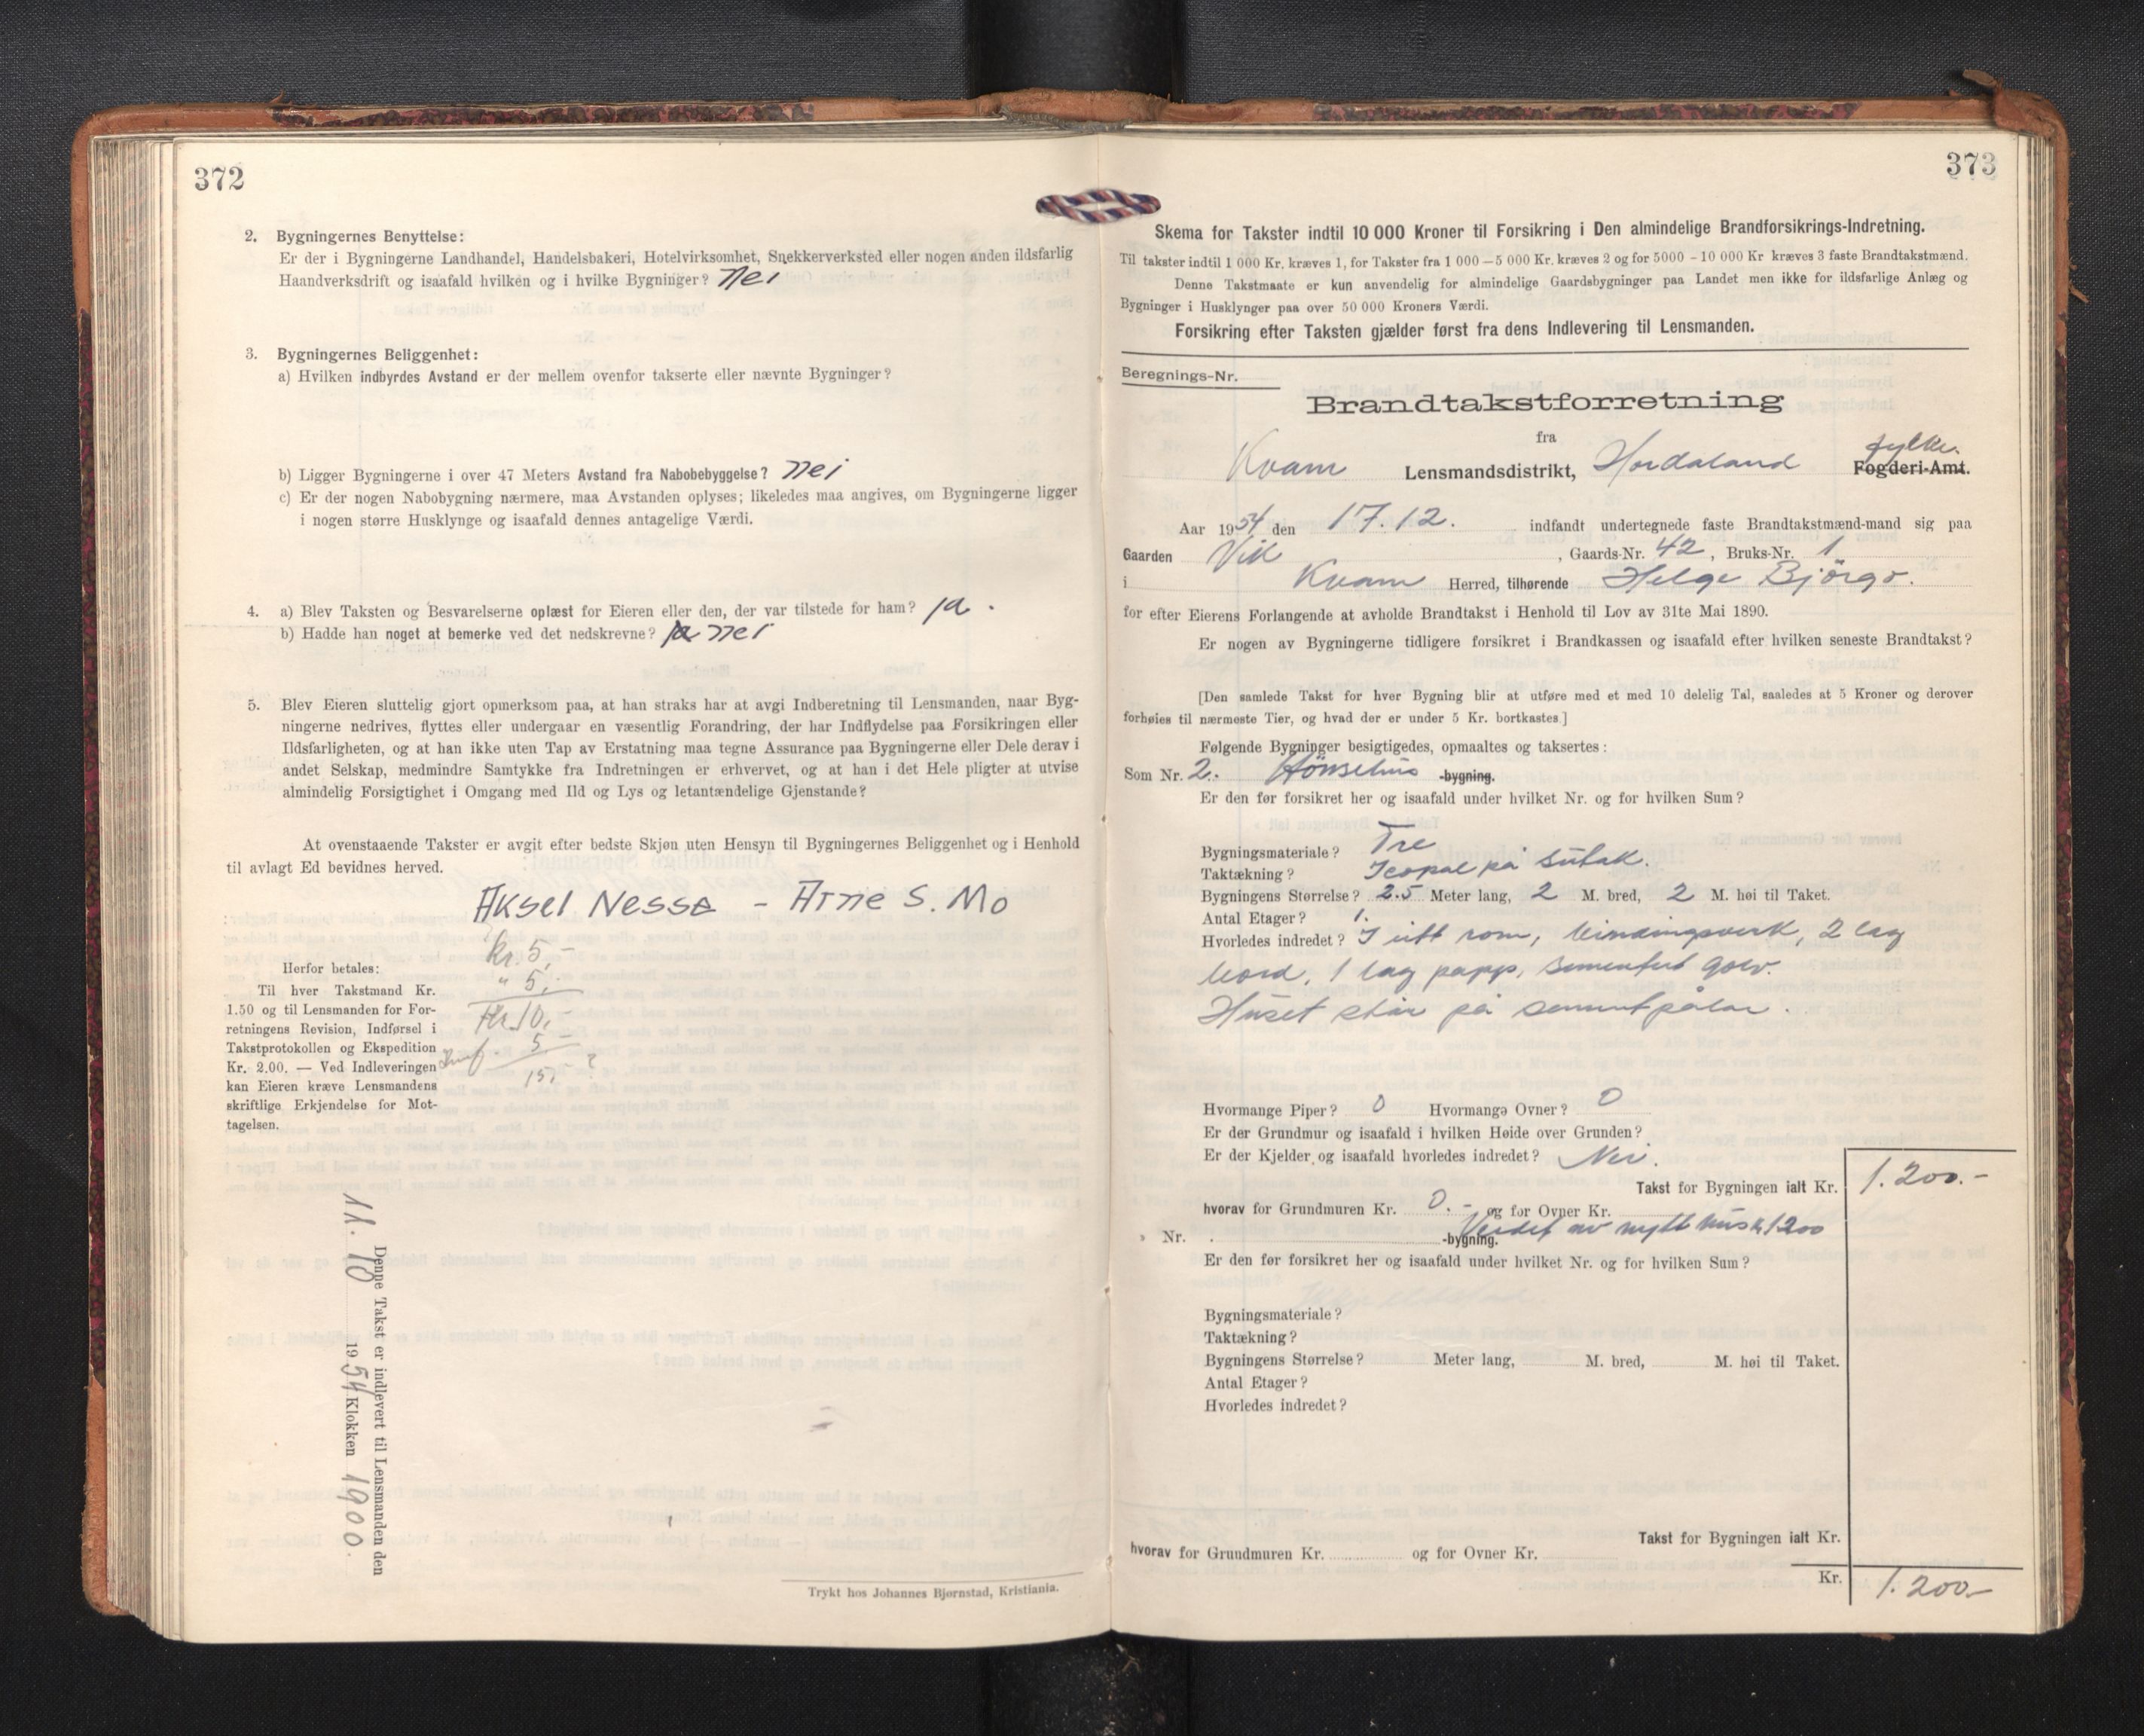 372
2. Bygningernes Benyttelse:
Er der i Bygningerne Landhandel, Handelsbakeri, Hotelvirksomhet, Snekkerverksted eller nogen anden ildsfarlig
Haandverksdrift og isaafald hvilken og i hvilke Bygninger? Nei
3. Bygningernes Beliggenhet:
a) Hvilken indbyrdes Avstand er der mellem ovenfor takserte eller nævnte Bygninger?
b) Ligger Bygningerne i over 47 Meters Avstand fra Nabobebyggelse? Nei
c) Er der nogen Nabobygning nærmere, maa Avstanden oplyses; likeledes maa angives, om Bygningerne ligger
i nogen større Husklynge og isaafald dennes antagelige Værdi.
4. a) Blev Taksten og Besvarelserne oplæst for Eieren eller den, der var tilstede for ham? ja.
b) Hadde han noget at bemerke ved det nedskrevne? ja nei
5. Blev Eieren sluttelig gjort opmerksom paa, at han straks har at avgi Indberetning til Lensmanden, naar Byg-
ningerne nedrives, flyttes eller undergaar en væsentlig Forandring, der har Indflydelse paa Forsikringen eller
Ildsfarligheten, og at han ikke uten Tap av Erstatning maa tegne Assurance paa Bygningerne eller Dele derav i
andet Selskap, medmindre Samtykke fra Indretningen er erhvervet, og at han i det Hele pligter at utvise
almindelig Forsigtighet i Omgang med Ild og Lys og letantændelige Gjenstande?
At ovenstaaende Takster er avgit efter bedste Skjøn uten Hensyn til Bygningernes Beliggenhet og i Henhold
til avlagt Ed bevidnes herved.
Aksel Nesse - Arne S. Mo
Kr. 5,-
" 5,-
Kr. 10,-
5 -
15,- ?
Herfor betales:
Til hver Takstmand Kr.
1.50 og til Lensmanden for For-
retningens Revision, Indførsel i
Takstprotokollen og Ekspedition
Kr. 2.00. — Ved Indleveringen
kan Eieren kræve Lensmandens
skriftlige Erkjendelse for Mot-
tagelsen.
Denne Takst er indlevert til Lensmanden den
11. 10 1954 Klokken 1900.
Trykt hos Johannes Bjørnstad, Kristiania.
373
Skema for Takster indtil 10 000 Kroner til Forsikring i Den almindelige Brandforsikrings-Indretning.
Til takster indtil 1 000 Kr. kræves 1, for Takster fra 1 000 — 5 000 Kr. kræves 2 og for 5000 - 10 000 Kr kræves 3 faste Brandtakstmænd.
Denne Takstmaate er kun anvendelig for almindelige Gaardsbygninger paa Landet men ikke for ildsfarlige Anlæg og
Bygninger i Husklynger paa over 50 000 Kroners Værdi.
Forsikring efter Taksten gjælder først fra dens Indlevering til Lensmanden.
Beregnings-Nr.
Brandtakstforretning
fra
Kvam Lensmandsdistrikt, Hordaland fylke. Fogderi-Amt.
Aar 1954 den 17.12. indfandt undertegnede faste Brandtakstmænd-mand sig paa
Gaarden Vik, Gaards-Nr. 42, Bruks-Nr. 1
i Kvam Herred, tilhørende Helge Bjørgo.
for efter Eierens Forlangende at avholde Brandtakst i Henhold til Lov av 31te Mai 1890.
Er nogen av Bygningerne tidligere forsikret i Brandkassen og isaafald efter hvilken seneste Brandtakst?
[Den samlede Takst for hver Bygning blir at utføre med et med 10 delelig Tal, saaledes at 5 Kroner og derover
forhøies til nærmeste Tier, og hvad der er under 5 Kr. bortkastes.]
Følgende Bygninger besigtigedes, opmaaltes og taksertes:
Som Nr. 2. Hönsehus -bygning.
Er den før forsikret her og isaafald under hvilket Nr. og for hvilken Sum?
Bygningsmateriale? Tre
Taktækning? Icopal på sutak.
Bygningens Størrelse? 2.5 Meter lang, 2 M. bred, 2 M. høi til Taket.
Antal Etager? 1.
Hvorledes indredet? I eitt rom, bindingsverk, 2 lag
bord, 1 lag papp, sementert golv.
Huset står på sementpålar.
Hvormange Piper? 0 Hvormange Ovner? 0
Er der Grundmur og isaafald i hvilken Høide over Grunden?
Er der Kjelder og isaafald hvorledes indredet? Nei.
Takst for Bygningen ialt Kr. 1.200.-
hvorav for Grundmuren Kr. 0.- og for Ovner Kr.
Verdet av nytt hus k 1200
" Nr. -bygning.
Er den før forsikret her og isaafald under hvilket Nr. og for hvilken Sum?
Bygningsmateriale?
Taktækning?
Bygningens Størrelse? Meter lang, M. bred, M. høi til Taket.
Antal Etager?
Hvorledes indredet?
Takst for Bygningen ialt Kr.
hvorav for Grundmuren Kr. og for Ovner Kr.
Kr. 1.200-